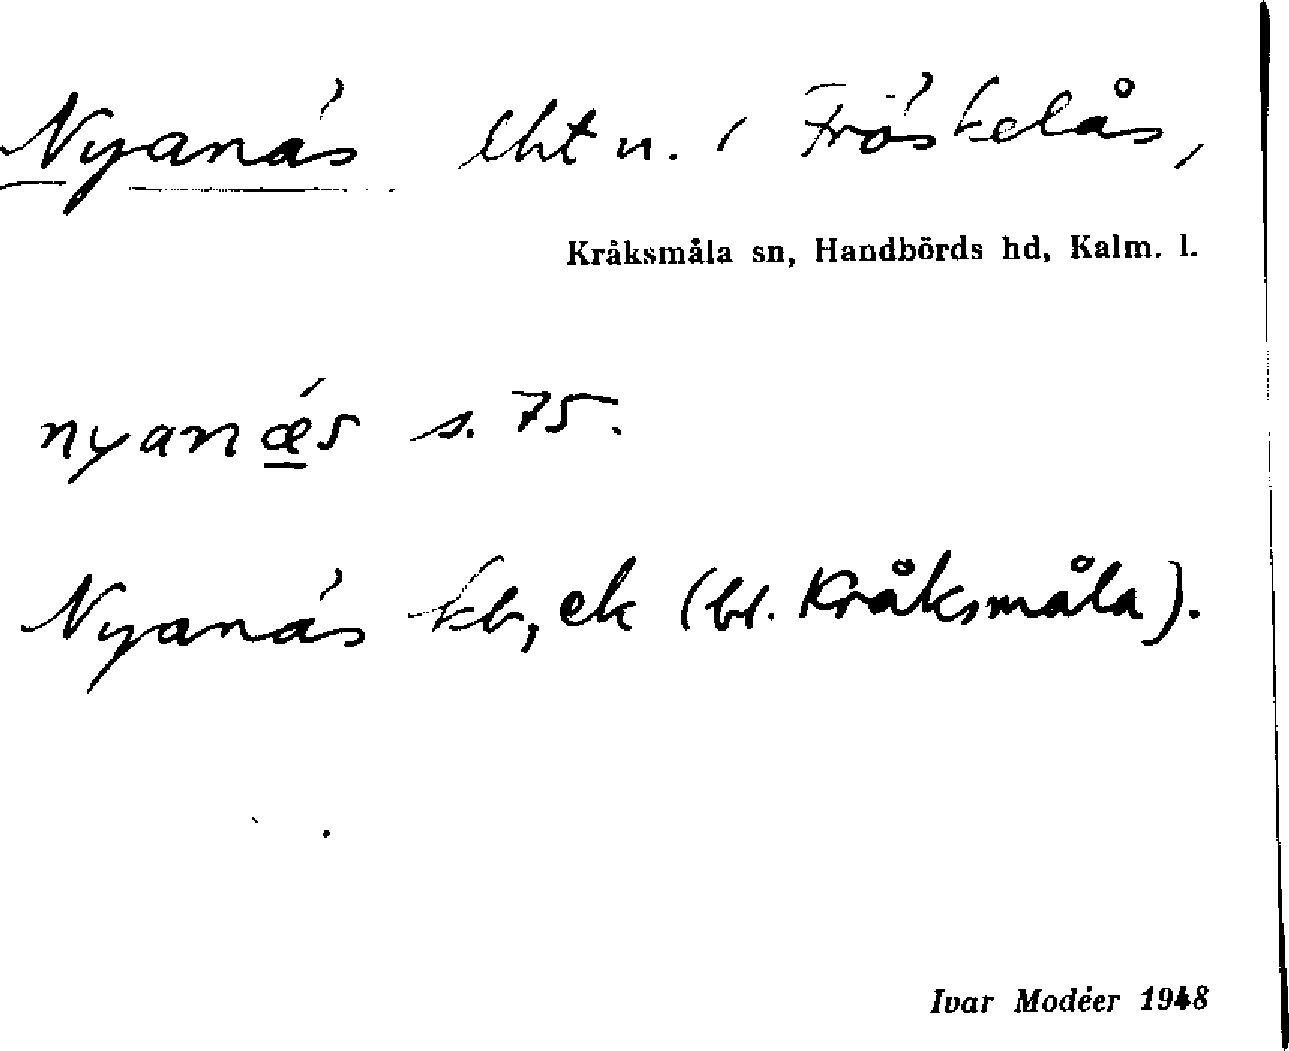 Nyanäs lht n. i Fröskelås,
Kråksmåla sn, Handbörds hd, Kalm. l.
nyanǽs s. 75.
Nyanäs kb, ek (bl. Kråksmåla).
Ivar Modéer 1948